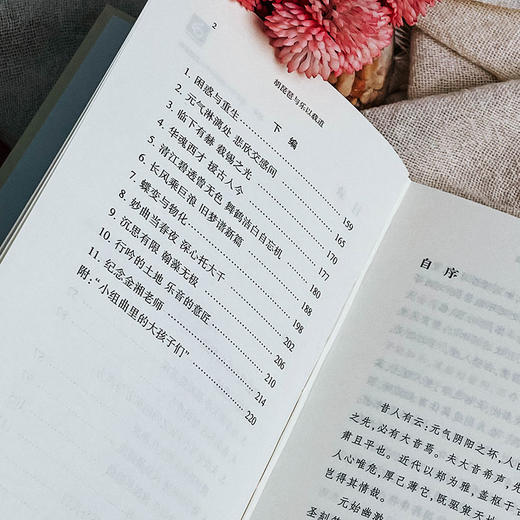 2
胡琵琶与乐以载道
下编
1. 困惑与重生 159
2. 元气淋漓处 悲欣交感间 165
3. 临下有赫 载锡之光 170
4. 华魂西才 援古入今 177
5. 清江碧透管无色 舞鹤洁白自忘机 180
6. 长风乘巨浪 旧梦谱新篇 188
7. 蝶变与物化 198
8. 妙曲当春夜 深心托大千 202
9. 沉思有限 翰藻无极 206
10. 行吟的土地 乐音的意匠 210
11. 纪念金湘老师 214
附：“小组曲里的大孩子们” 220
自序
昔人有云：元气阴阳之坏，人
之先，必有大音焉。夫大音希声，先
肃且平也。近代以郑为雅，盖枢于
人心唯危，厚己薄它，既驱策天地
岂得其情哉。
元始幽
圣刻的